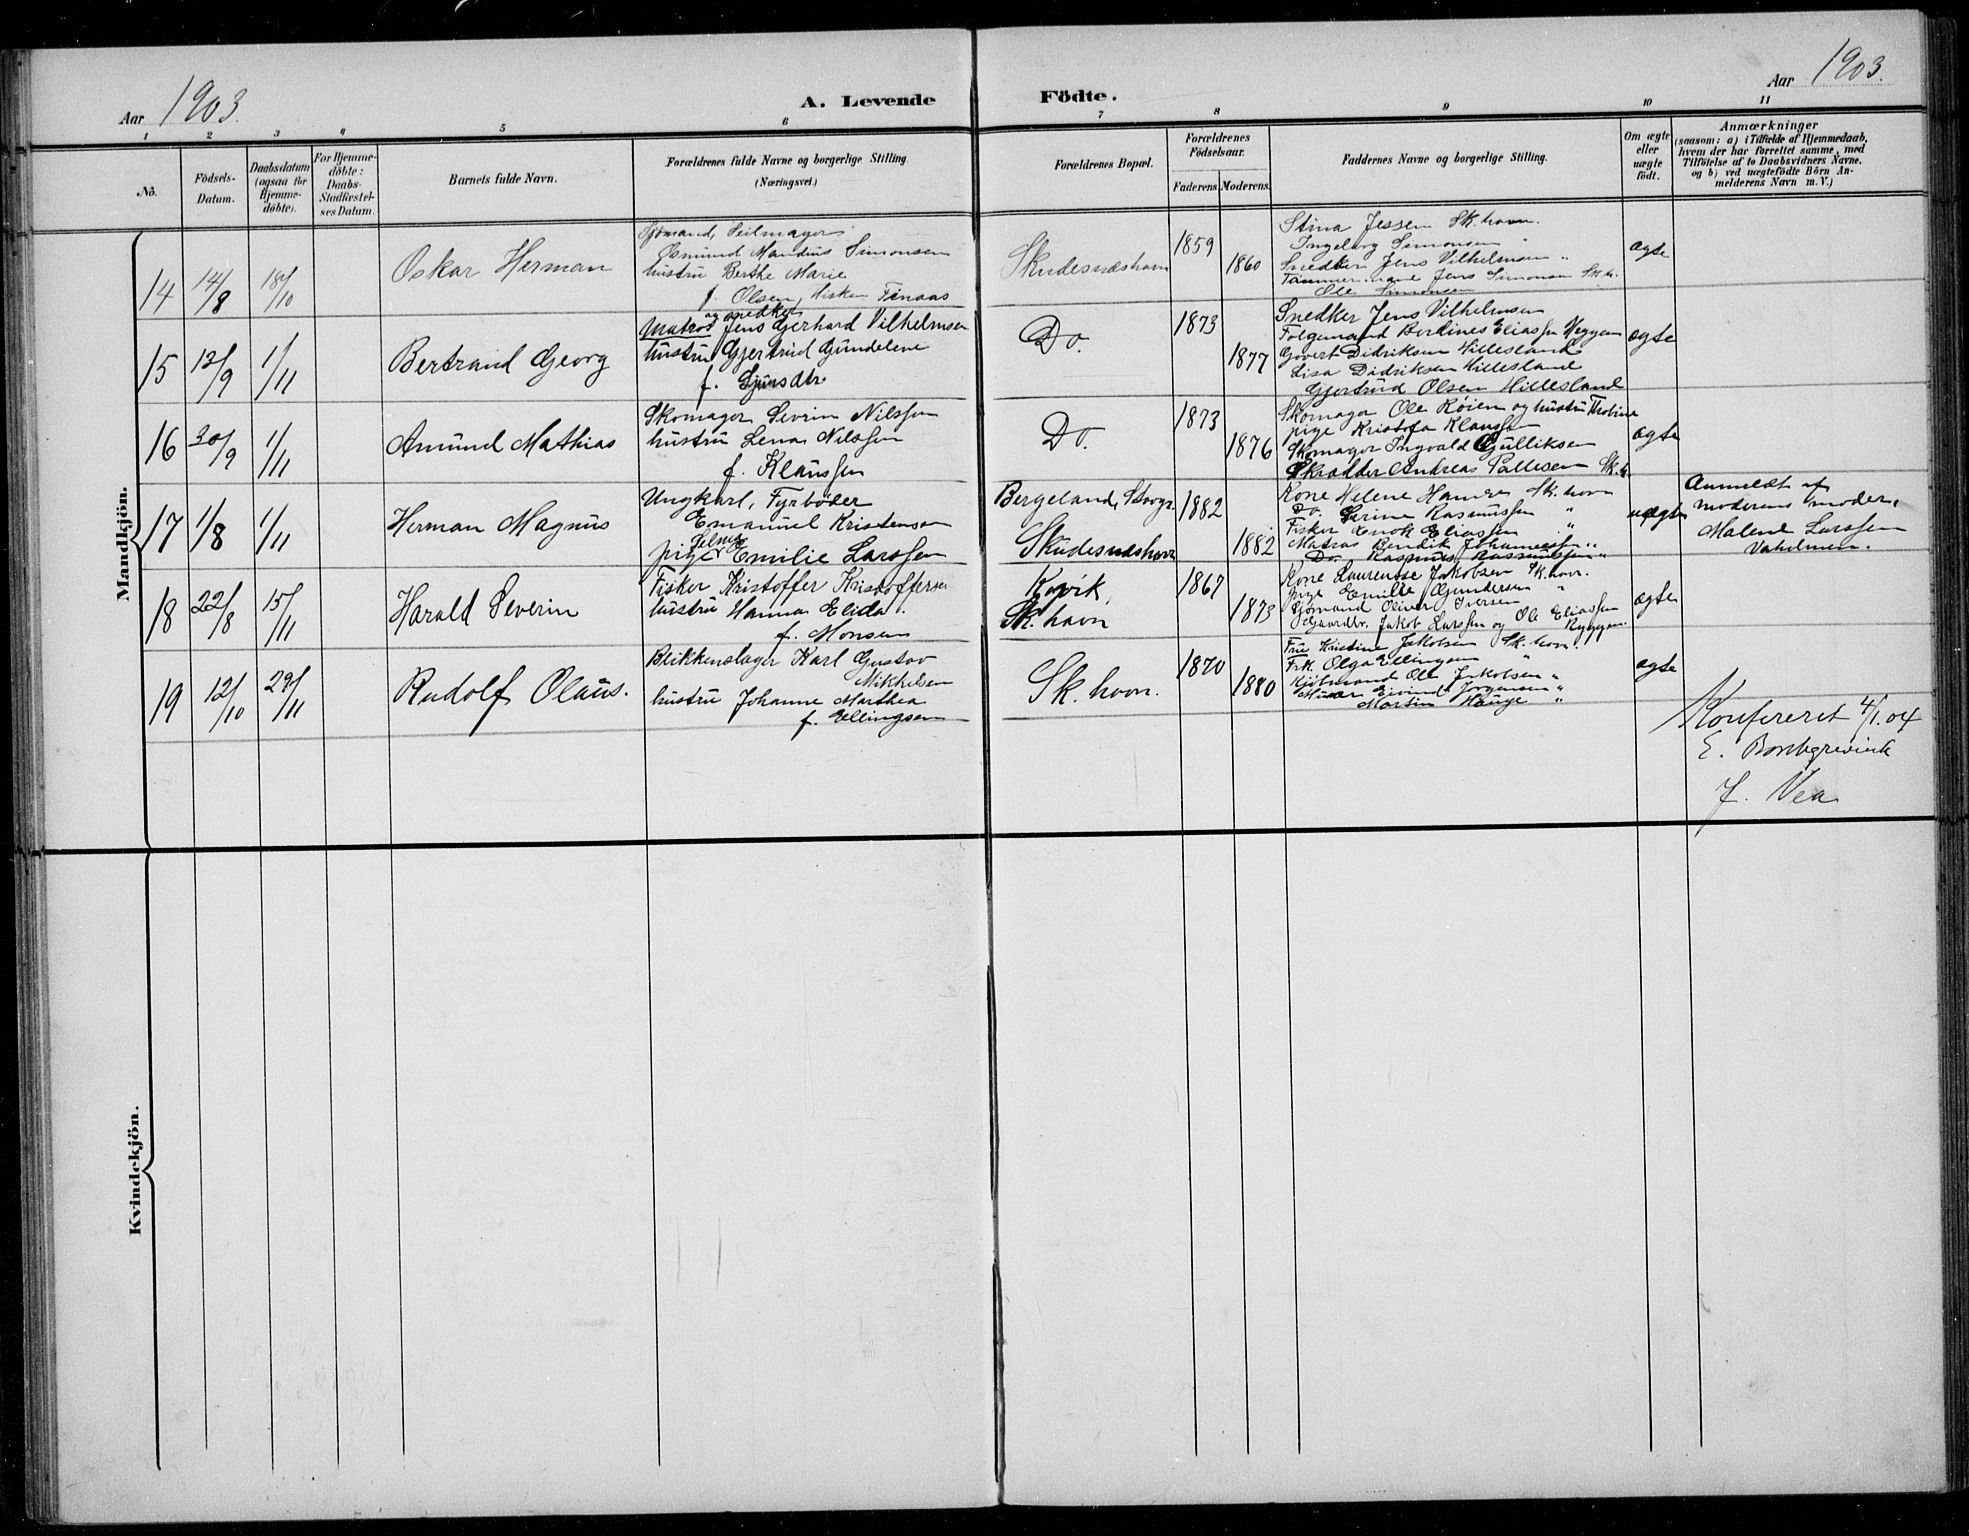 Aar 1903.
A. Levende Födte.
Aar 1903.
1 2 3 4 5 6 7 8 9 10 11
Nö.
Födsels-Datum.
Daabsdatum (ogsaa for Hjemme-döbte).
For Hjemme-döbte: Daabs-Stadfæstel-ses Datum.
Barnets fulde Navn.
Forældrenes fulde Navne og borgerlige Stilling.
(Næringsvei.)
Forældrenes Bopæl.
Forældrenes Födselsaar.
Faderens. Moderens.
Faddernes Navne og borgerlige Stilling.
Om ægte eller uægte födt.
Anmærkninger
(saasom: a) i Tilfælde af Hjemmedaab,
hvem der har forrettet samme, med
Tilföielse af to Daabsvidners Navne.
og b) ved uægtefödte Börn An-
melderens Navn m. V.)
Mandkjön.
14 14/8 18/10 Oskar Herman
Sjömand, Seilmager
Osmund Mandius Simonsen
hustru Berthe Marie
f. Olsen,
Skudesneshavn 1859 1860
Stina Jessen Sk. havn.
Ingeborg Simonsen "
Snedker Jens Vilhelmsen "
Tömmermand Jens Simonsen Sk. h.
Ole Simonsen
ægte
15 13/9 1/11 Bertrand Georg
og snedker
Matros Jens Gerhard Vilhelmsen
hustru Gjertrud Gundelene
f. Sjursdtr.
Do. 1873 1877
Snedker Jens Vilhelmsen
Folgemand Berdines Eliassen Heggem
Govert Didriksen Hillesland
Lisa Didriksen Hillesland
Gjertrud Olsen Hillesland
ægte
16 30/9 1/11 Amund Mathias
Skomager Sevrin Nilssen
hustru Lena Nilssen
f. Klaussen
Do. 1873 1876
Skomager Ole Röien og hustru Thobine
pige Kristofa Klaussen
Skomager Ingvald Gulliksen
Skrædder Andreas Pallesen Sk. h
ægte
17 1/8 1/11 Herman Magnus
Ungkarl, Fyrböder
Emanuel Kristensen
Selma
pige Emilie Larssen
Bergeland, Stavgr. 1882
Skudesneshavn 1882
Kone Helene Hansen Sk. havn
Do. Serine Rasmussen "
Fisker Enok Eliassen "
Matros Bendik Johannessen "
Do. Rasmus Rasmussen "
uægte
Anmeldt af
moderens moder,
Malene Larssen
18 22/8 15/11 Harald Severin
Fisker Kristoffer Kristoffersen
hustru Hanna Elida
f. Monsen
Kirvik, 1867
Sk. havn 1873
Kone Laurentse Jakobsen Sk. havn.
pige Emilie Gundersen "
Sjömand Oliver Iversen
Gaardbr. Jakob Larssen og Ole Eliassen
Ryggen.
ægte
19 12/10 29/11 Rudolf Olaus.
Blikkenslager Karl Gustav
Mikkelsen
hustru Johanne Marthea
f. Ellingsen
Sk. havn. 1870 1880
Frue Kristine Jakobsen Sk. havn.
Frk. Olga Ellingsen "
Kjöbmand Ole Jakobsen "
Murer Eivind Jörgensen "
Martin Hauge "
ægte
Konfereret 4/1. 04
E.
J. Vea
Kvindekjön.